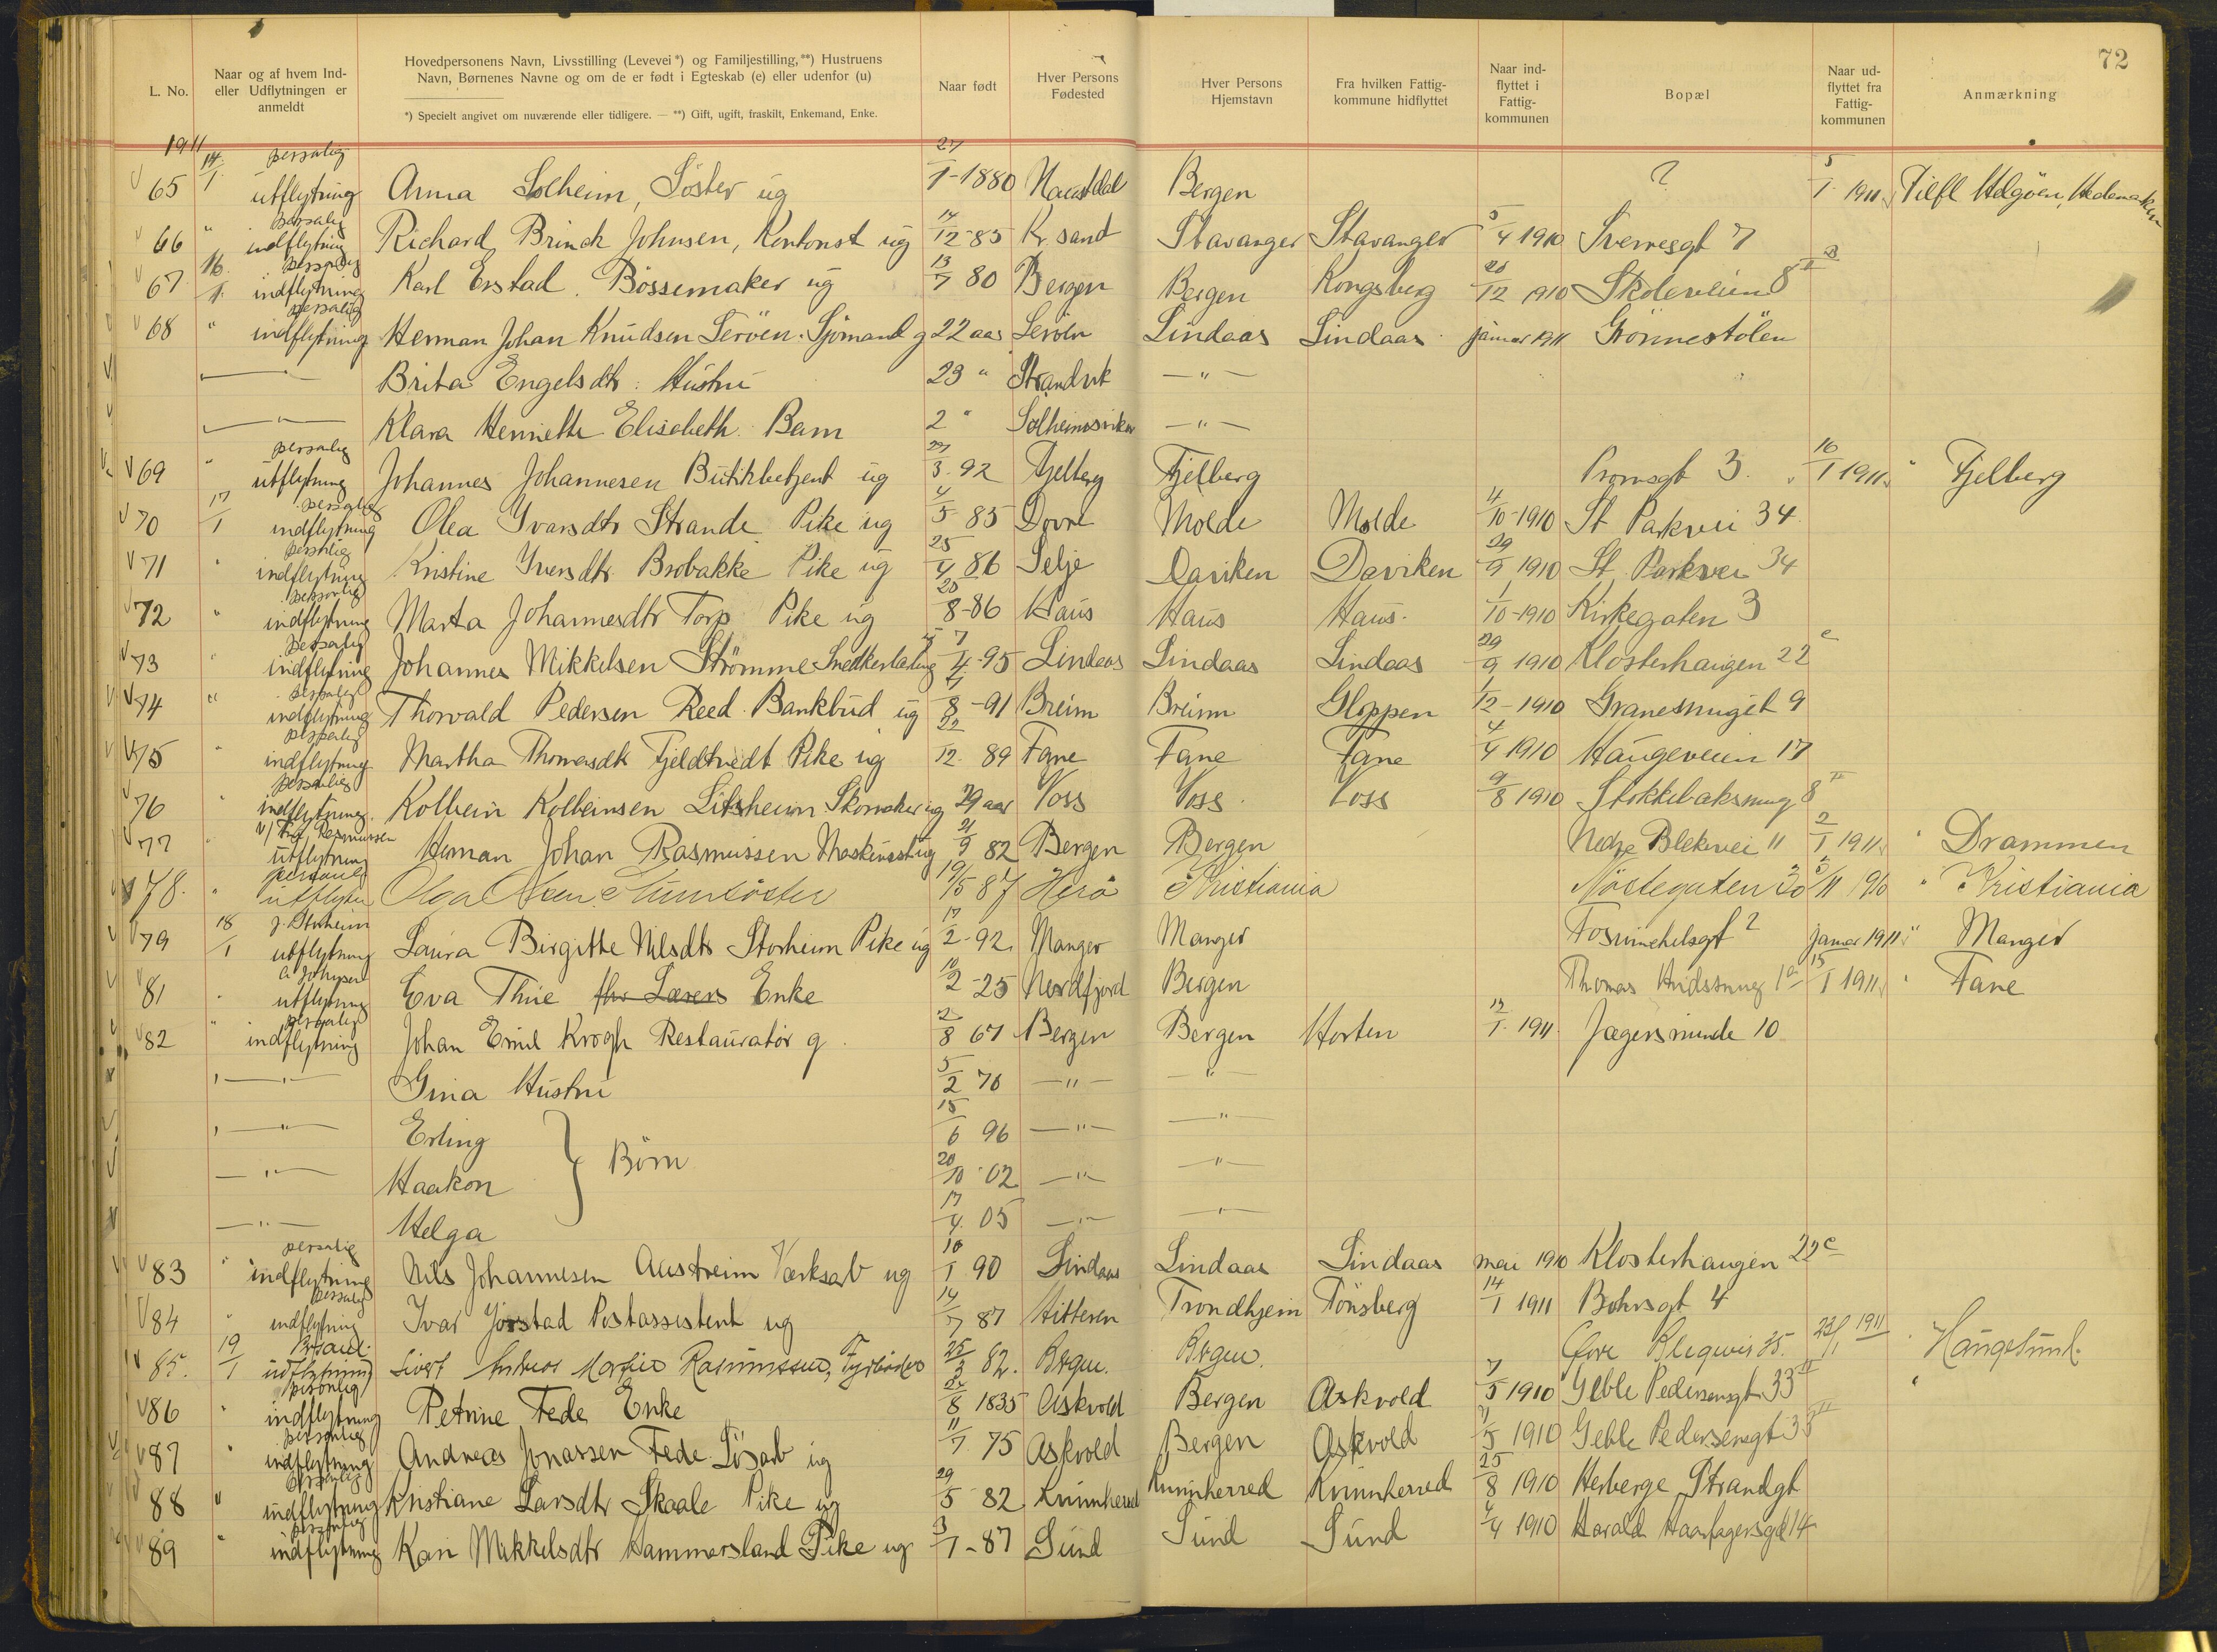 72
L. No.
Naar og af hvem Ind- eller Udflytningen er anmeldt
Hovedpersonens Navn, Livsstilling (Levevei*) og Familjestilling,**) Hustruens Navn, Børnenes Navne og om de er født i Egteskab (e) eller udenfor (u)
*) Specielt angivet om nuværende eller tidligere. — **) Gift, ugift, fraskilt, Enkemand, Enke.
Naar født
Hver Persons Fødested
Hver Persons Hjemstavn
Fra hvilken Fattig- kommune hidflyttet
Naar ind- flyttet i Fattig- kommunen
Bopæl
Naar ud- flyttet fra Fattig- kommunen
Anmærkning
1911
65 14/1 personlig utflytning Anna Solheim, Søster ug 27/1-1880 Naustdal Bergen ? 5/1 1911 Tilfl Helgöen, Hedemarken
66 " personlig indflytning Richard Brinck Johnsen, Kontorist ug 14/12-85 Kr. sand Stavanger Stavanger 5/4 1910 Sverresgt 7
67 16/1 personlig indflytning Karl Erstad. Bøssemaker ug 13/7 80 Bergen Bergen Kongsberg 28/12 1910 Skoleveien 8
68 " personlig indflytning Herman Johan Knudsen Seröen. Sjömand g 22 aar Seröen Lindaas Lindaas januar 1911 Grönnestölen
Brita Engelsdtr. Hustru 23 " Strandvik — " —
— " — Klara Henriette Elisabeth. Barn 2 " Solheimsviken — " —
69 " personlig utflytning Johannes Johannesen Butikbetjent ug 27/3-92 Fjelberg Fjelberg Promsgt 3. 16/1 1911 " Fjelberg
70 17/1 personlig indflytning Olea Ivarsdtr Strande Pike ug 4/5 85 Dovre Molde Molde 4/10-1910 St Parkvei 34
71 " personlig indflytning Kristine Iversdtr Brobakke Pike ug 25/4 86 Selje Daviken Daviken 29/9 1910 St. Parkvei 34
72 " personlig indflytning Marta Johannesdtr Torp Pike ug 20/8-86 Haus Haus Haus. 1/10-1910 Kirkegaten 3
73 " personlig indflytning Johannes Mikkelsen Strömme Snekkerlærling ug 7/4-95 Lindaas Lindaas Lindaas 29/9 1910 Klosterhaugen 22 c
74 " personlig indflytning Thorvald Pedersen Reed. Bankbud ug 4/8-91 Breim Breim Gloppen 1/12-1910 Granesmuget 9
75 " personlig indflytning Martha Thomasdtr Fjeldtvedt Pike ug 22/12. 89 Fane Fane Fane 4/4 1910 Haugeveien 17
76 " personlig indflytning. Kolbein Kolbeinsen Litsheim Skomaker ug 29 aar Voss Voss. Voss 9/8 1910 Stokkebaksmug 8 II
77 " v/ Rasmussen utflytning Herman Johan Rasmussen Maskinist ug 21/9 82 Bergen Bergen Nedre Blekevei 11 2/1 1911 " Drammen
78. " personlig utflytn Olga Olsen 19/5 87 Herö Kristiania Nöstegaten 30 /11 1910 " Kristiania
79 18/1 J. Storheim utflytning Laura Birgitte Nilsdtr Storheim Pike ug 17/2-92. Manger Manger januar 1911 " Manger
81 " A. Johnsen utflytning Eva Thue Enke 10/2-25 Nordfjord Bergen Thomas 15/1 1911 " Fane
82 " personlig indflytning Johan Emil Krogh Restauratör g. 2/8 67 Bergen Bergen Horten 12/1. 1911. Jægersminde 10
— " — Gina Hustru 5/2 76 — " — — " —
— " — Erling } Börn 15/6 96 — " — — " —
— " — Haakon 20/10-02 — " — — " —
— " — Helga 17/4. 05 — " — — " —
83 " personlig indflytning Nils Johannesen Austreim Verksarb ug 10/1 90 Lindaas Lindaas Lindaas mai 1910 Klosterhaugen 22 c
84 " personlig indflytning Ivar Jörstad Postassistent ug 14/7 87 Hitteren Trondhjem Tönsberg 14/1 1911 Bohrsgt 4
85. 19/1 udflytning Sivert Andreas Martin Rasmussen, Fyrböder 25/3 82. Bergen. Bergen. Övre Blegevei 35. 22/1 1911 " Haugesund.
86 " personlig indflytning Petrine Fede Enke 22/8 1835 Askvold Bergen Askvold 7/5 1910 Geble Pedersensgt 33 II
87 " personlig indflytning Andreas Jonassen Fede. Lösarb ug 11/7 75 Askvold Bergen Askvold 7/5 1910 Geble Pedersensgt 33 III
88 " personlig indflytning Kristiane Larsdtr Skaale Pike ug 29/5 82 Kvinnherred Kvinnherred Kvinnherred 25/8 1910 Herberge Strandgt
89 " personlig indflytning Kari Mikkelsdtr Hammersland Pike ug 3/1-87 Sund Sund Sund 4/4 1910 Harald Haarfagersgt 14